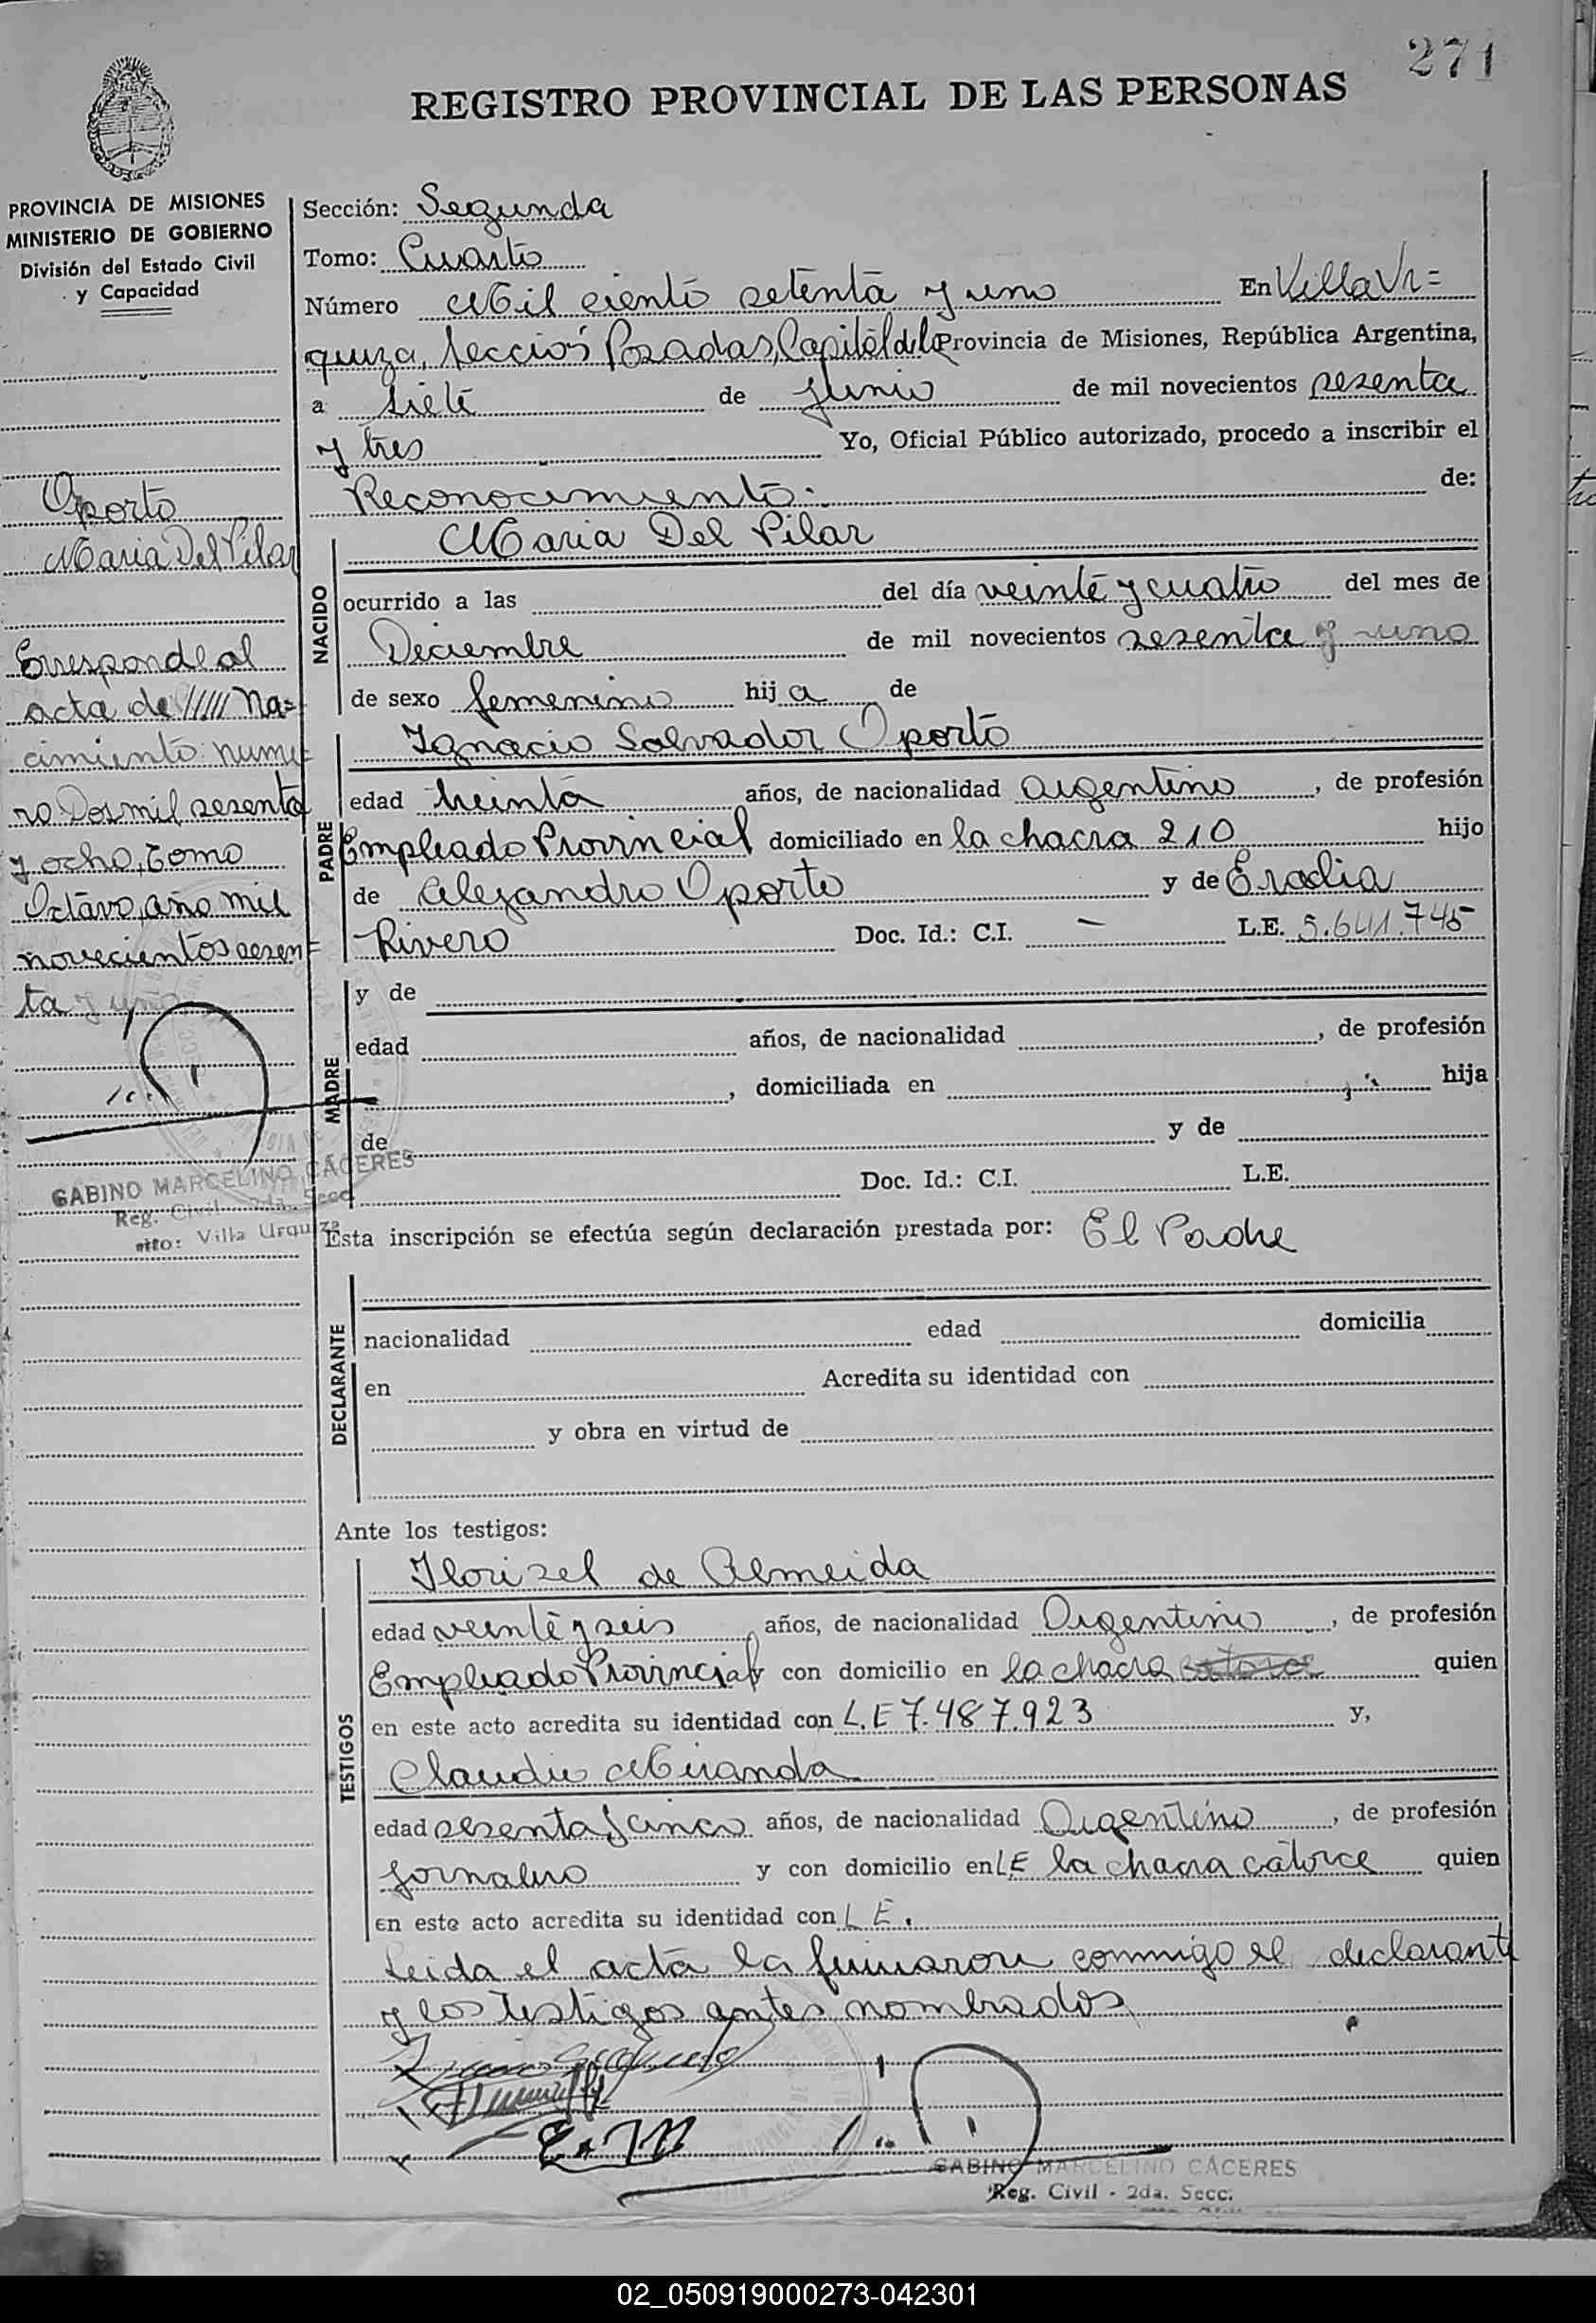 271
REGISTRO PROVINCIAL DE LAS PERSONAS
PROVINCIA DE MISIONES
MINISTERIO DE GOBIERNO
División del Estado Civil
y Capacidad
Oporto
Maria Del Pilar
Corresponde al
acta de ///// Na=
cimiento nume=
ro Dos mil sesenta
y ocho, Tomo
Octavo, año mil
novecientos sesen=
ta y uno
GABINO MARCELINO CÁCERES
Reg. Civil - 2da. Secc.
Villa Urquiza
Sección: Segunda
Tomo: Cuarto
Número Mil ciento setenta y uno En Villa Ur=
quiza, Sección Posadas, Capital de la Provincia de Misiones, República Argentina,
a siete de Junio de mil novecientos sesenta
y tres Yo, Oficial Público autorizado, procedo a inscribir el
Reconocimiento. de:
NACIDO
Maria Del Pilar
ocurrido a las del día veinte y cuatro del mes de
Diciembre de mil novecientos sesenta y uno
de sexo femenino hij a de
PADRE
Ignacio Salvador Oporto
edad treinta años, de nacionalidad Argentino, de profesión
Empleado Provincial domiciliado en la chacra 210 hijo
de Alejandro Oporto y de Eradia
Rivero Doc. Id.: C.I. — L.E. 5.641.745
MADRE
y de
edad años, de nacionalidad , de profesión
, domiciliada en hija
de y de
Doc. Id.: C.I. L.E.
Esta inscripción se efectúa según declaración prestada por: El Padre
DECLARANTE
nacionalidad edad domicilia
en Acredita su identidad con
y obra en virtud de
Ante los testigos:
TESTIGOS
Florisel de Almeida
edad veinte y seis años, de nacionalidad Argentino, de profesión
Empleado Provincial y con domicilio en la chacra quien
en este acto acredita su identidad con L.E 7.487.923 y,
Claudio Miranda
edad sesenta y cinco años, de nacionalidad Argentino, de profesión
Jornalero y con domicilio en LE la chacra catorce quien
en este acto acredita su identidad con L E.
Leida el acta la firmaron conmigo el declarante
y los testigos antes nombrados
GABINO MARCELINO CÁCERES
Reg. Civil - 2da. Secc.
02_050919000273-042301